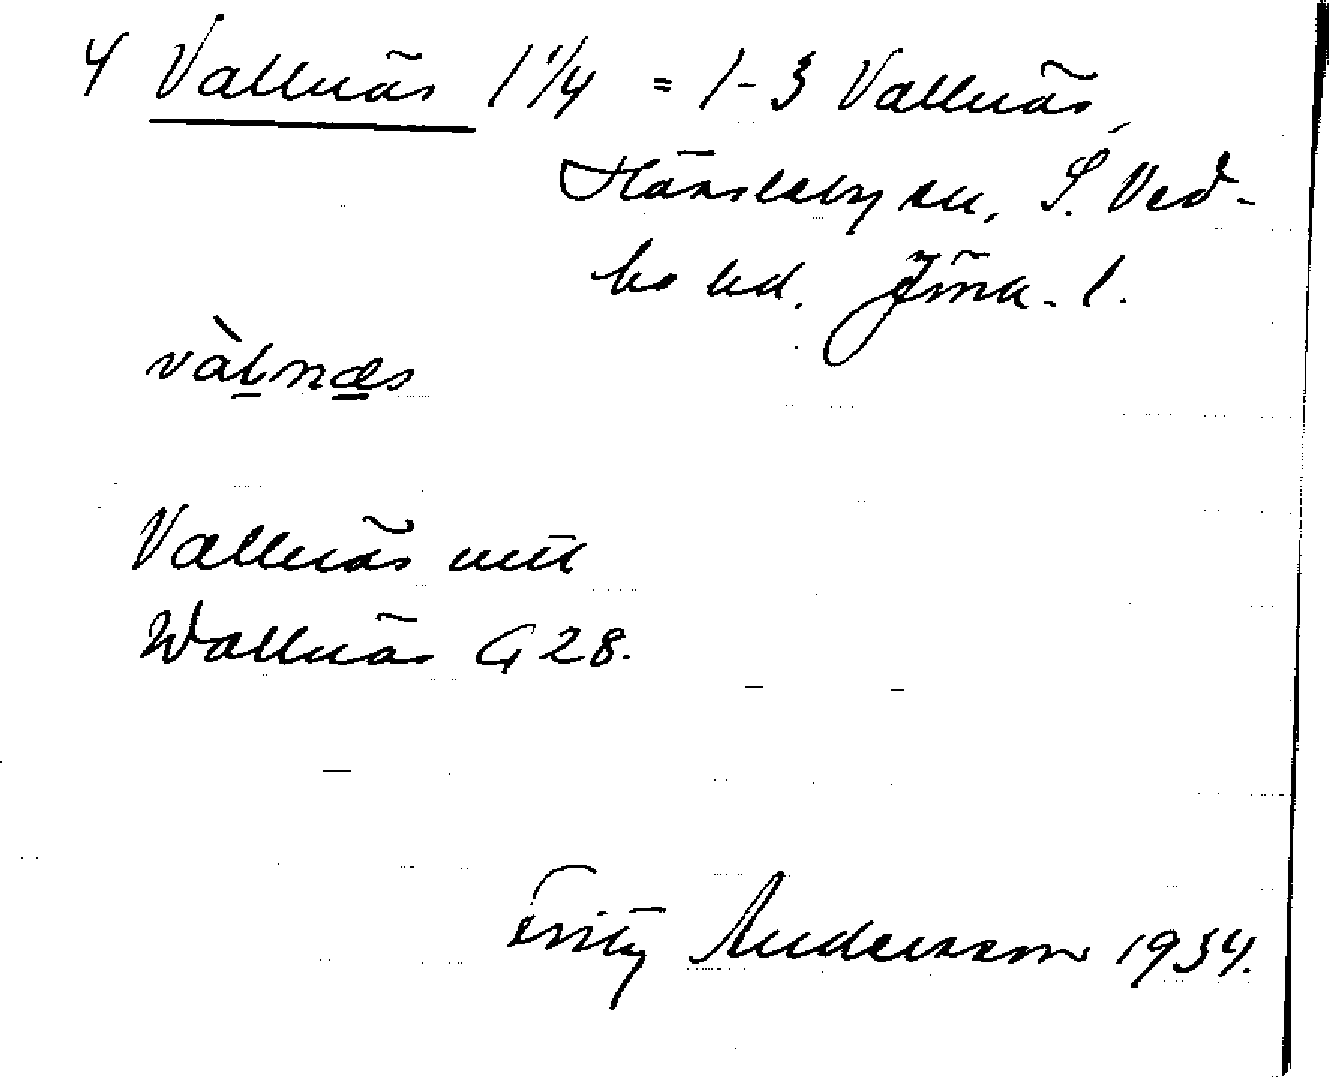 4 Vallnäs 1 1/4 = 1-3 Vallnäs,
Hässleby sn, S. Ved-
bo hd. Jönk. l.
vàḻnæ̱s
Vallnäs mtl
Wallnäs G 28.
Fritz Andersson 1934.